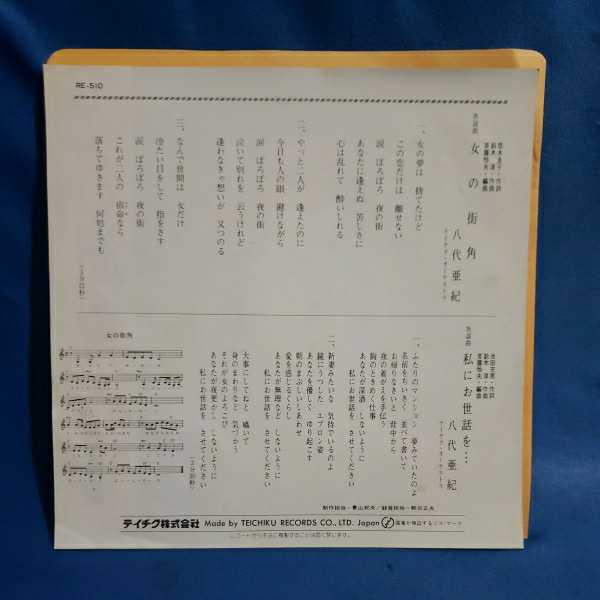 RE-510
歌謡曲
女の街角
八代亜紀
テイチク・オーケストラ
一、女の夢は 捨てたけど
この恋だけは 離せない
涙 ぼろぼろ 夜の街
あなたに逢えぬ 苦しさに
心は乱れて 酔いしれる
二、やっと二人が 逢えたのに
今日も人の眼 避けながら
涙 ぼろぼろ 夜の街
泣いて別れを 云うけれど
逢わなきゃ想いが 又つのる
三、なんで世間は 女だけ
冷たい目をして 指をさす
涙 ぼろぼろ 夜の街
これが二人の 宿命なら
落ちてゆきます 何処までも
歌謡曲
私にお世話を…
八代亜紀
テイチク・オーケストラ
一、ふたりのマンション 夢みていたのよ
名前をちいさく 並べて書いて
お帰りなさいと 背中から
夜の着がえを手伝う
胸のときめく仕事
あなたが深酒 しないように
私にお世話を させてください
二、新妻みたいな 気持でいるのよ
鏡にうつした エプロン姿
あなたを優しく ゆり起こす
朝のまぶしいしあわせ
愛を感じるくらし
あなたが無理など しないように
私にお世話を させてください
大事にしてねと 囁いて
身のまわりなど 気づかう
それが女のよろこび
あなたが夜更かし しないように
私にお世話を させてください
女の街角
テイチク株式会社 Made by TEICHIKU RECORDS CO., LTD. Japan